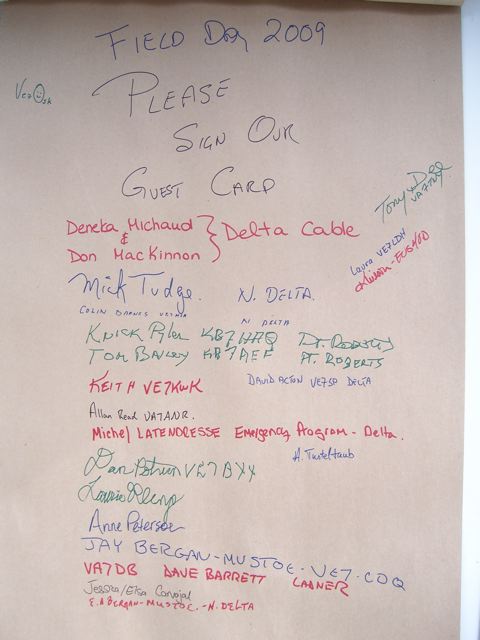 FIELD DAY 2009
PLEASE
SIGN OUR
GUEST CARD
Tony
VA7
Deneka Michaud
&
Don MacKinnon
Delta Cable
Laura VE7LDH
Mick Tudge.
N. DELTA.
COLIN BARNES
N DELTA
KB7HRO
Pt. Roberts
TOM BAILEY KB7AEF PT. ROBERTS
KEITH VE7KWK
DAVID ACTON VE7SO DELTA
Allan Read VA7ANR.
Michel LATENDRESSE Emergency Program - Delta.
A. Turteltaub
VE7BXX
Anne Petersen
JAY BERGAN-MUSTOE - VE7-CDQ
VA7DB DAVE BARRETT LADNER
Jessica/Elsa Carvajal
E.A BERGAN-MUSTOE. -N. DELTA